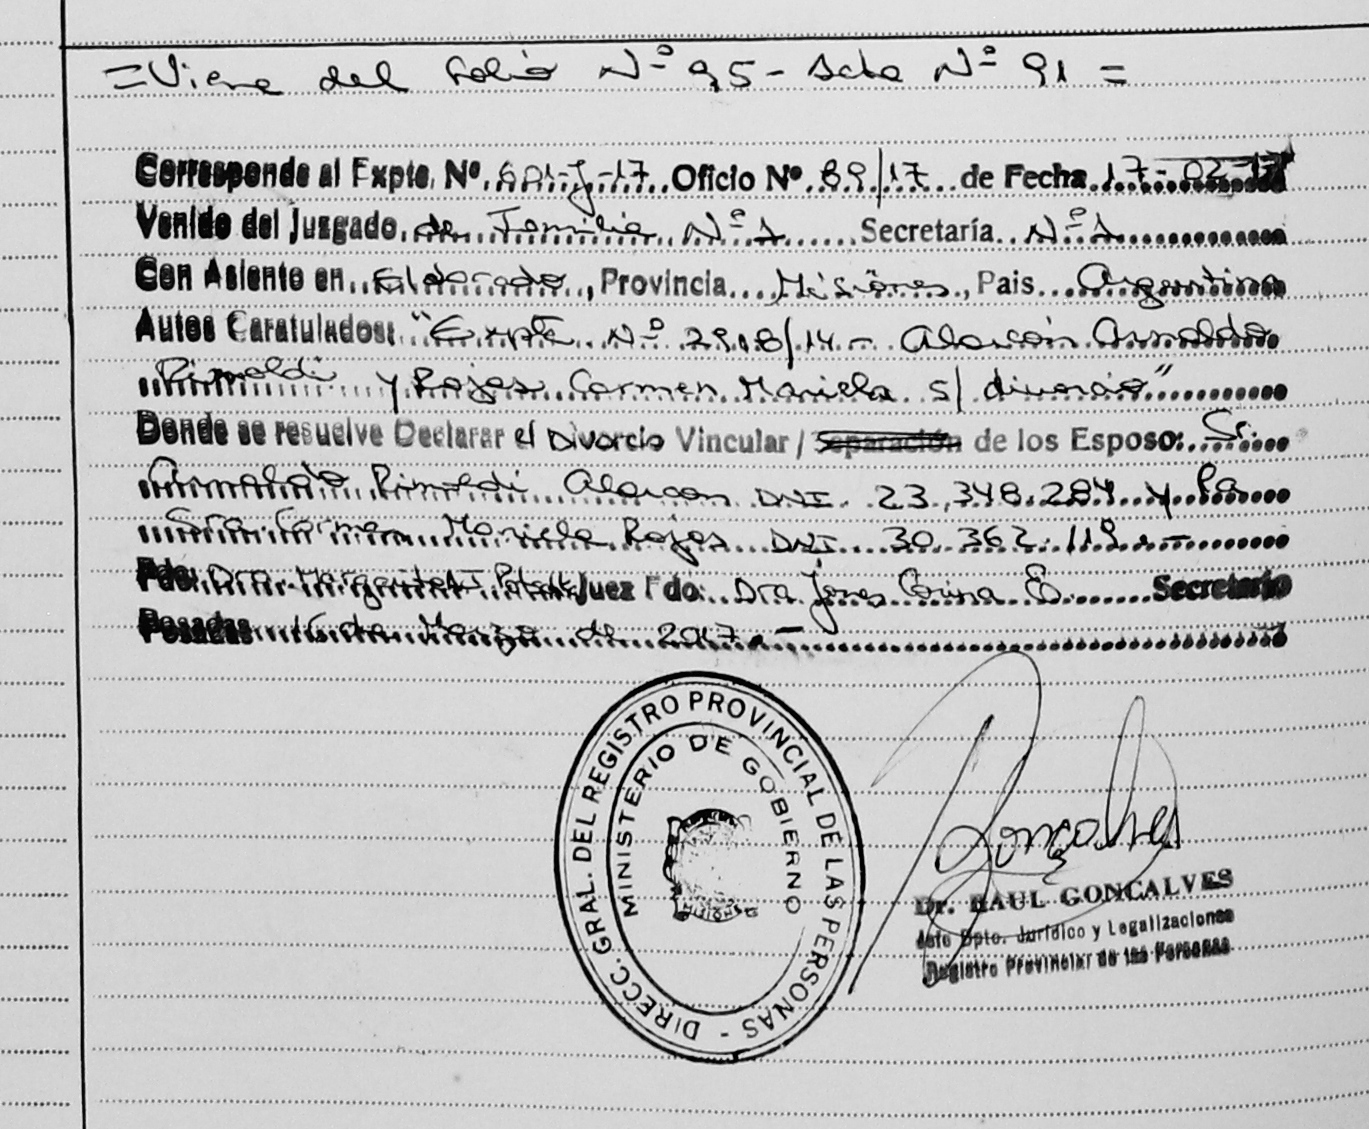 = Viene del folio Nº 95 - Acta Nº 91 =
Corresponde al Expte. Nº 601-J-17 Oficio Nº 89/17 de Fecha 17-02-17
Venido del Juzgado de Familia Nº 1 Secretaría Nº 1
Con Asiento en Eldorado, Provincia Misiones, Pais Argentina
Autos Caratulados: "Expte Nº 2918/14 - Alarcón Arnoldo
Rinoldi y Rojas Carmen Mariela s/ divorcio"
Donde se resuelve Declarar el Divorcio Vincular / Separación de los Esposo: Sr.
Arnoldo Rinoldi Alarcon DNI 23.348.284 y la
Sra. Carmen Mariela Rojas DNI 30.362.119.-
Fdo: Dra. Margarita Juez Fdo: Dra Jones Corina E. Secretario
Posadas 16 de Marzo de 2017.-
DIRECC. GRAL. DEL REGISTRO PROVINCIAL DE LAS PERSONAS -
MINISTERIO DE GOBIERNO
MISIONES
Gonçalves
Dr. RAUL GONCALVES
Jefe Dpto. Jurídico y Legalizaciones
Registro Provincial de las Personas